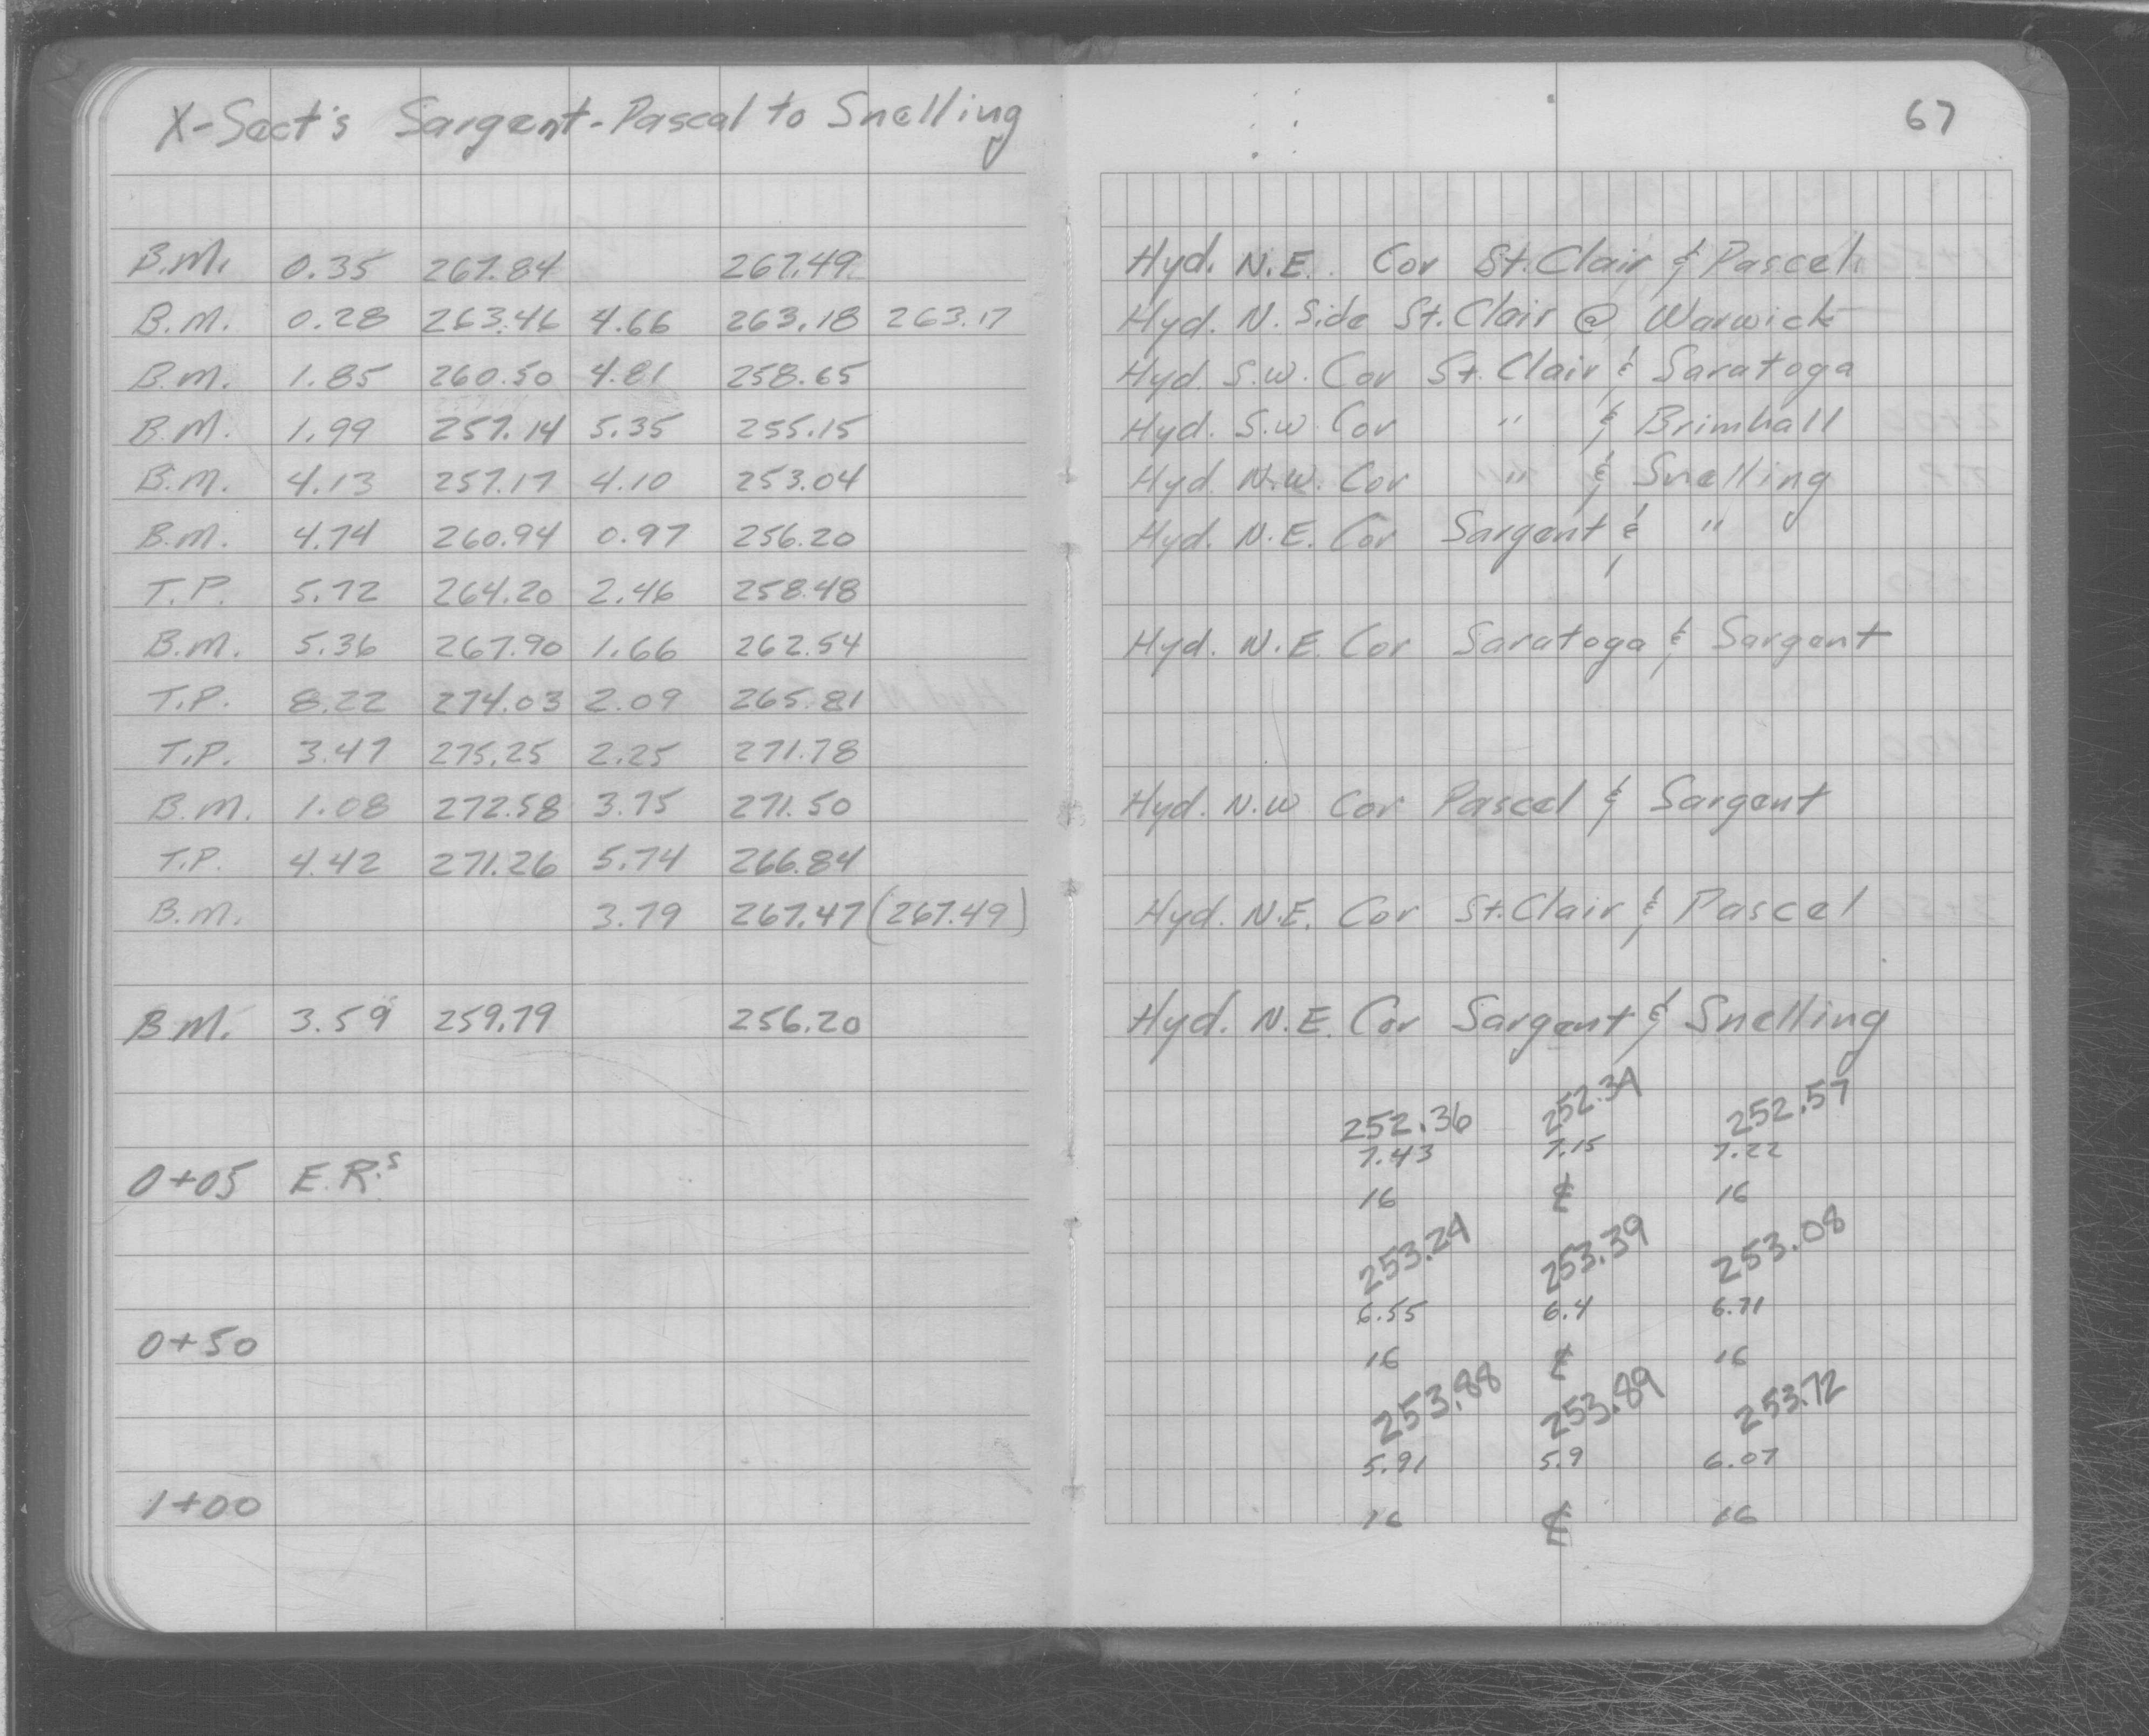 X-Sect's Sargent-Pascal to Snelling
67
B.M. 0.35 267.84 267.49 Hyd. N.E. Cor St. Clair & Pascal
B.M. 0.28 263.46 4.66 263.18 263.17 Hyd. N. Side St. Clair @ Warwick
B.M. 1.85 260.50 4.81 258.65 Hyd. S.W. Cor St. Clair & Saratoga
B.M. 1.99 257.14 5.35 255.15 Hyd. S.W. Cor " & Brimhall
B.M. 4.13 257.17 4.10 253.04 Hyd. N.W. Cor " & Snelling
B.M. 4.74 260.94 0.97 256.20 Hyd. N.E. Cor Sargent & "
T.P. 5.72 264.20 2.46 258.48
B.M. 5.36 267.90 1.66 262.54 Hyd. N.E. Cor Saratoga & Sargent
T.P. 8.22 274.03 2.09 265.81
T.P. 3.47 275.25 2.25 271.78
B.M. 1.08 272.58 3.75 271.50 Hyd. N.W Cor Pascal & Sargent
T.P. 4.42 271.26 5.74 266.84
B.M. 3.79 267.47 (267.49) Hyd. N.E. Cor St. Clair & Pascal
B.M. 3.59 259.79 256.20 Hyd. N.E. Cor Sargent & Snelling
252.36 252.34 252.57
7.43 7.15 7.22
0+05 E.R.s 16 ℄ 16
253.24 253.39 253.08
6.55 6.4 6.71
0+50 16 ℄ 16
253.88 253.89 253.72
5.91 5.9 6.07
1+00 16 ℄ 16